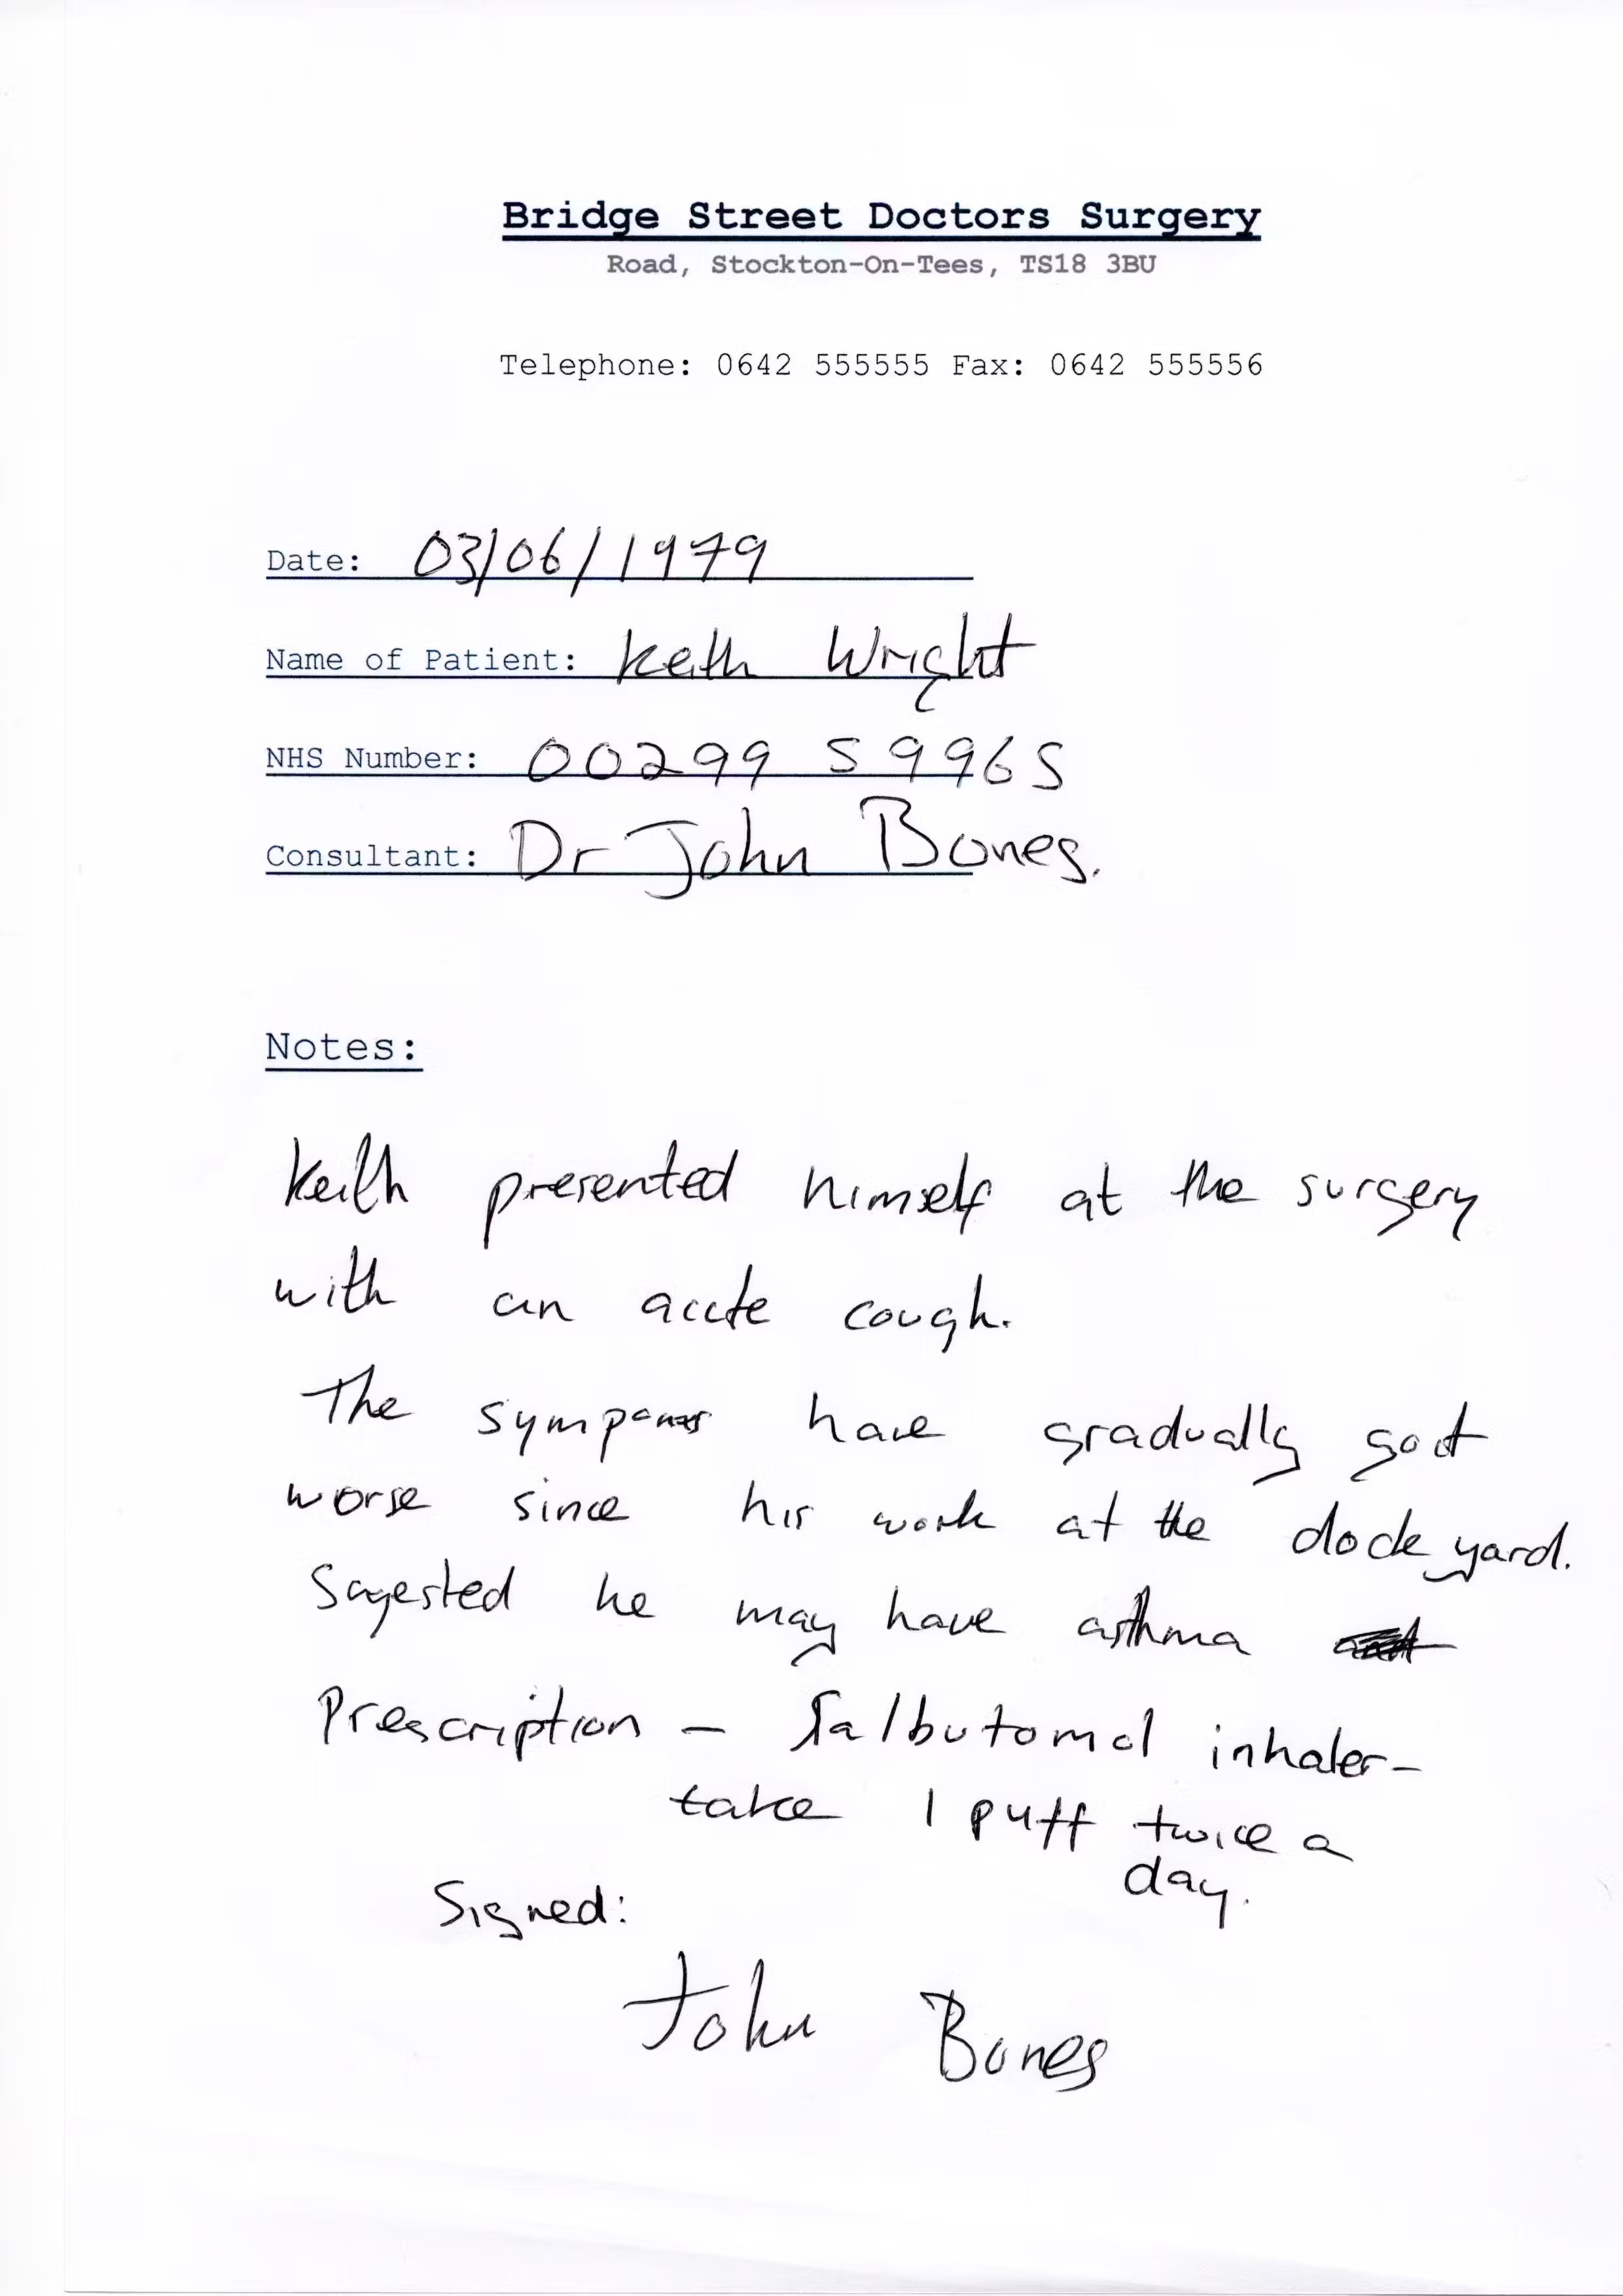 Bridge Street Doctors Surgery
Road, Stockton-On-Tees, TS18 3BU
Telephone: 0642 555555 Fax: 0642 555556
Date: 03/06/1979
Name of Patient: Keith Wright
NHS Number: 00299 59965
Consultant: Dr John Bones.
Notes:
Keith presented himself at the surgery
with an accte cough.
The have gradually got
worse since his work at the dock yard.
Sugested he may have asthma
Prescription - Salbutomol inhaler-
take 1 puff twice a
day.
Signed:
John Bones